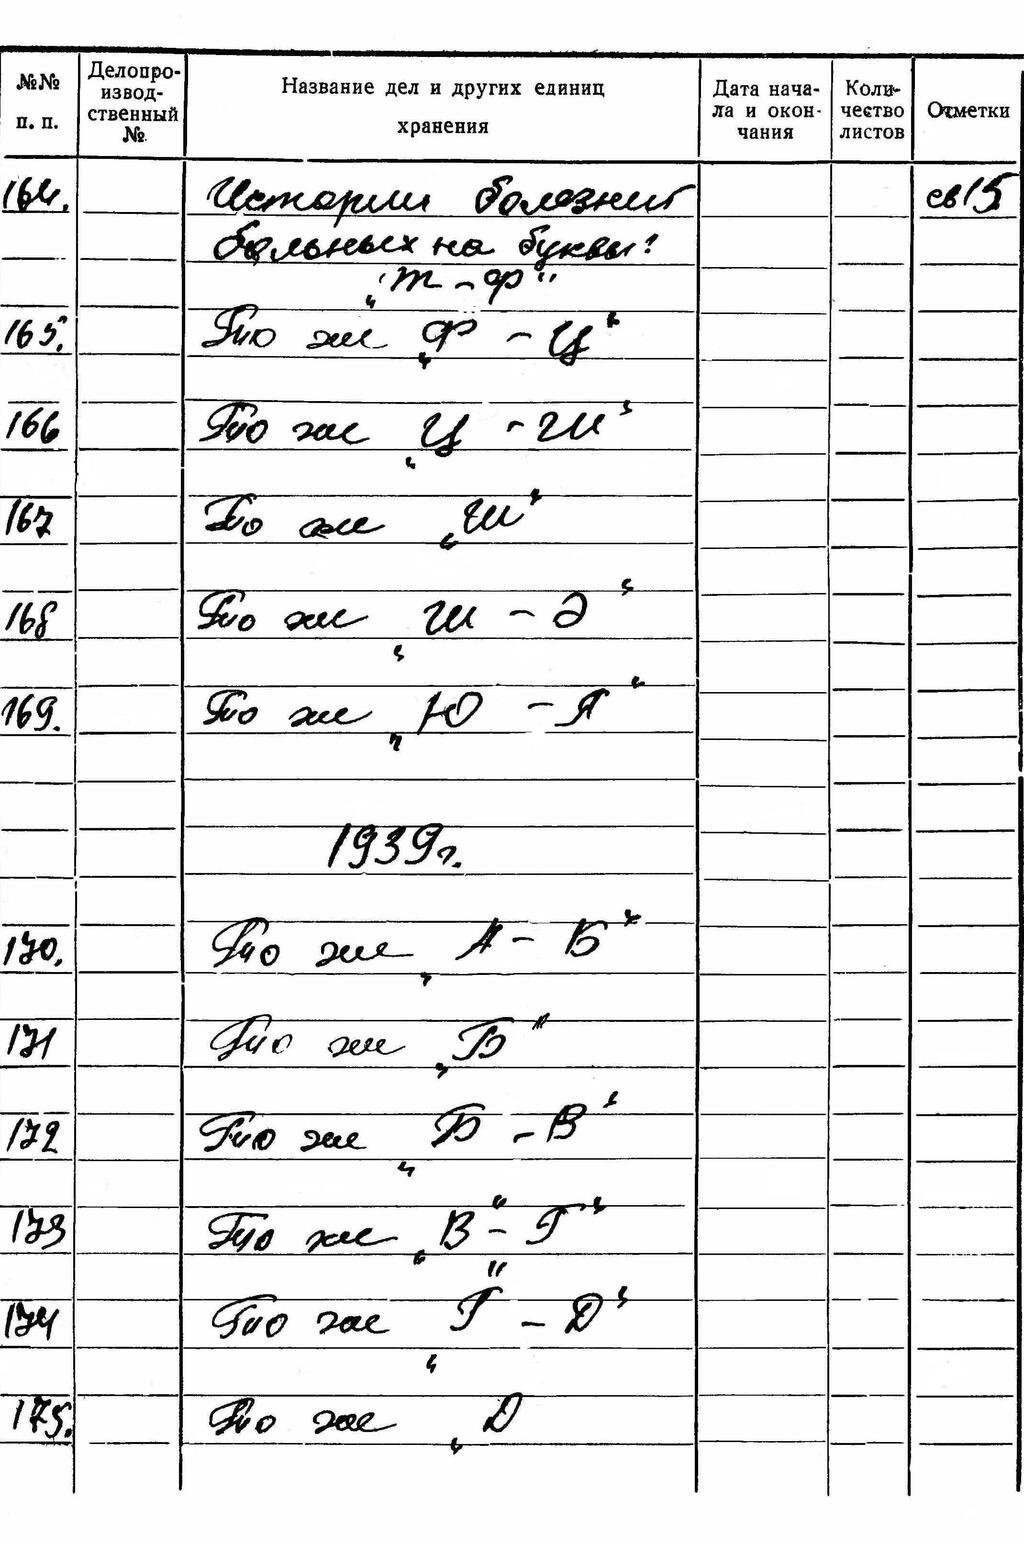 №№ п. п.
Делопро-
извод-
ственный
№
Название дел и других единиц
хранения
Дата нача-
ла и окон-
чания
Коли-
чество
листов
Отметки
164. Истории болезни св 15
больных на буквы:
„Т – Ф"
165. То же „Ф – Ц"
166 То же „Ц – Ш"
167 То же „Ш"
168 То же „Ш – Э"
169. То же „Ю – Я"
1939 г.
170. То же „А – Б"
171 То же „Б"
172 То же „Б – В"
173 То же „В" – „Г"
174 То же „Г – Д"
175. То же „Д